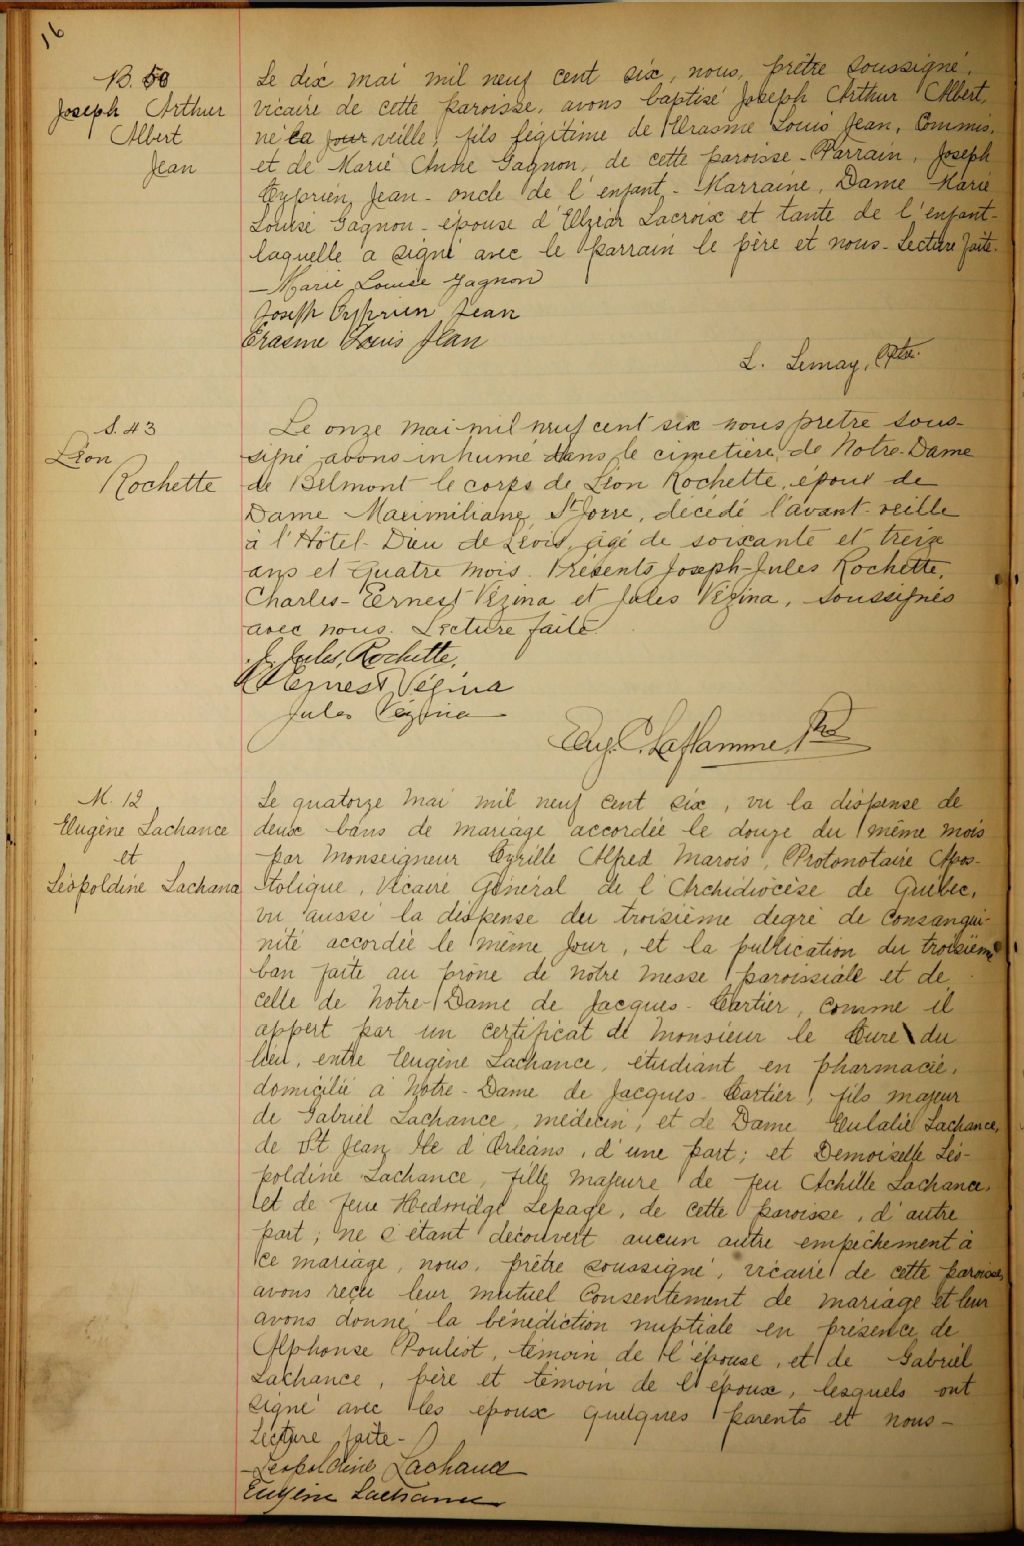 16
B. 50
Joseph Arthur
Albert
Jean
Le dix mai mil neuf cent six, nous, prêtre soussigné,
vicaire de cette paroisse, avons baptisé Joseph Arthur Albert,
né la jour veille, fils légitime de Erasme Louis Jean, Commis,
et de Marie Anne Gagnon, de cette paroisse - Parrain, Joseph
Cyprien Jean - oncle de l'enfant - Marraine, Dame Marie
Louise Gagnon - épouse d'Elzéar Lacroix et tante de l'enfant -
laquelle a signé avec le parrain le père et nous - Lecture faite.
- Marie Louise Gagnon
Joseph Cyprien Jean
Erasme Louis Jean
L. Lemay, Ptre.
S. 43
Léon
Rochette
Le onze mai mil neuf cent six nous prêtre sous-
signé avons inhumé dans le cimetière de Notre-Dame
de Belmont le corps de Léon Rochette, époux de
Dame Maximiliane St Jorre, décédé l'avant-veille
à l'Hôtel-Dieu de Lévis, âgé de soixante et treize
ans et quatre mois. Présents Joseph-Jules Rochette,
Charles-Ernest Vézina et Jules Vézina, soussignés
avec nous. Lecture faite.
J. Jules Rochette,
C Ernest Vézina
Jules Vézina
Eug. C. Laflamme, Ptre
M. 12
Eugène Lachance
et
Léopoldine Lachance
Le quatorze mai mil neuf cent six, vu la dispense de
deux bans de mariage accordée le douze du même mois
par Monseigneur Cyrille Alfred Marois, Protonotaire Apos-
tolique, Vicaire Général de l'Archidiocèse de Québec,
vu aussi la dispense du troisième degré de consangui-
nité accordée le même jour, et la publication du troisième
ban faite au prône de notre messe paroissiale et de
celle de Notre-Dame de Jacques-Cartier, comme il
appert par un certificat de Monsieur le Curé du
lieu, entre Eugène Lachance, étudiant en pharmacie,
domicilié à Notre-Dame de Jacques-Cartier, fils majeur
de Gabriel Lachance, médecin, et de Dame Eulalie Lachance,
de St Jean Ile d'Orléans, d'une part; et Demoiselle Léo-
poldine Lachance, fille majeure de feu Achille Lachance,
et de feue Hedwidge Lepage, de cette paroisse, d'autre
part; ne s'étant découvert aucun autre empêchement à
ce mariage, nous, prêtre soussigné, vicaire de cette paroisse,
avons reçu leur mutuel consentement de mariage et leur
avons donné la bénédiction nuptiale en présence de
Alphonse Pouliot, témoin de l'épouse, et de Gabriel
Lachance, père et témoin de l'époux, lesquels ont
signé avec les époux quelques parents et nous -
Lecture faite -
- Léopoldine Lachance
Eugène Lachance